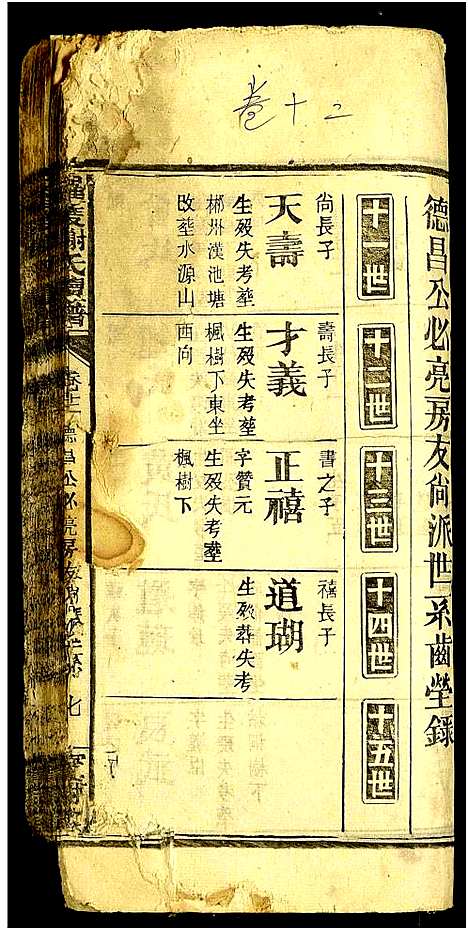 卷十二
德昌公必亮房友尙派世系齒塋錄
十一世
十二世
十三世
十四世
十五世
尙長子
天壽
生歿失考塟
郴州漢池塘
改塟水源山
壽長子
才義
生歿失考塟
楓樹下東坐
西向
書之子
正禧
字贊元
生歿失考塟
楓樹下
禧長子
道瑚
生歿葬失考
謝氏
譜
德昌公必亮房友
七